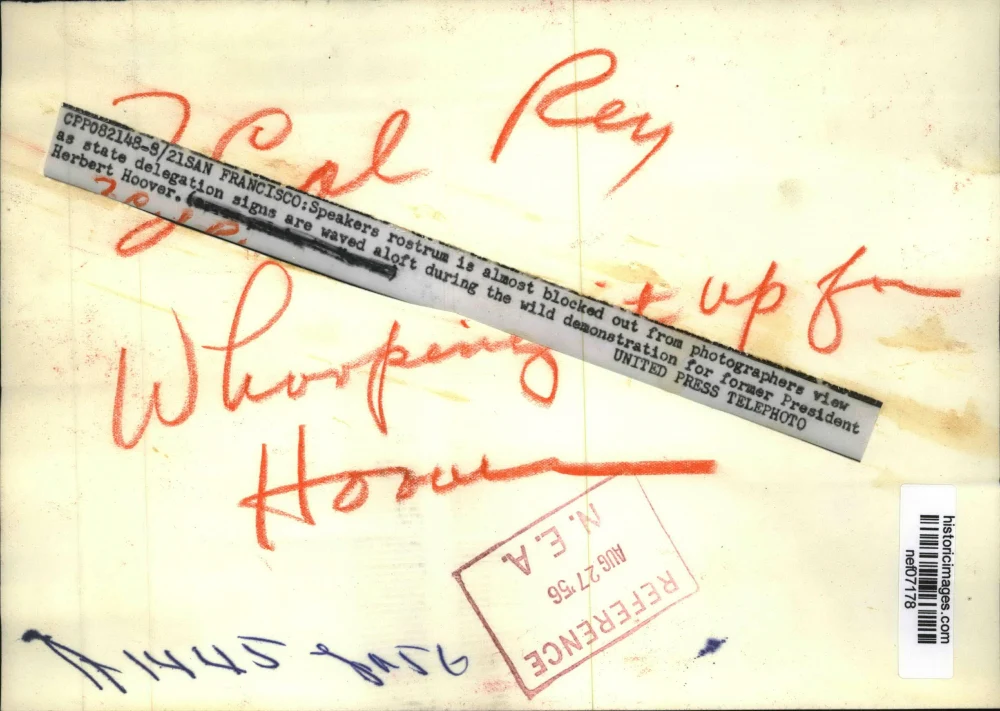 Rey
CPP082148-8/21SAN FRANCISCO:Speakers rostrum is almost blocked out from photographers view
as state delegation signs are waved aloft during the wild demonstration for former President
Herbert Hoover.
UNITED PRESS TELEPHOTO
Whooping it up for
Hoover
REFERENCE
AUG 27 '56
N. E. A.
historicimages.com
nef07178